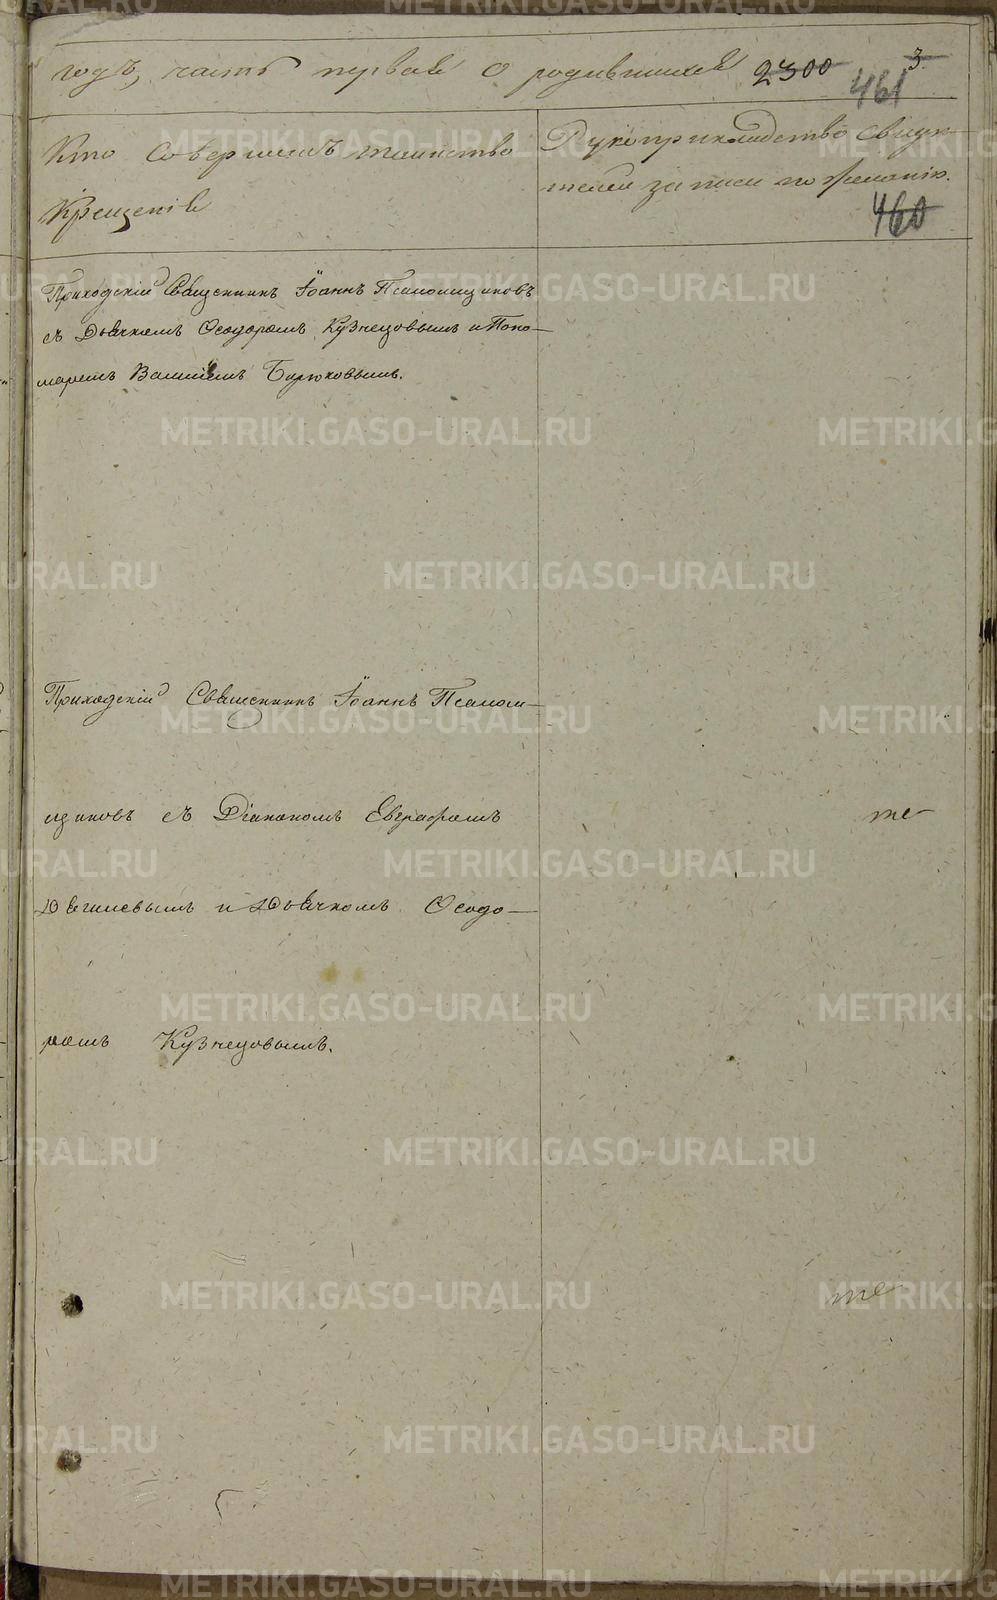 годъ, часть первая о родившихся 2300 3
461
Кто совершалъ таинство
Крещенія
Рукоприкладство свидѣ-
телей записи по желанію.
460
Приходскій Священникъ Іоаннъ Псаломщиковъ
съ Дьячкомъ Ѳеодоромъ Кузнецовымъ и Поно-
маремъ Бирюковымъ.
Приходскій Священникъ Іоаннъ Псалом-
щиковъ съ Діакономъ Евграфомъ
Дягилевымъ и Дьячкомъ Ѳеодо-
ромъ Кузнецовымъ.
METRIKI.GASO-URAL.RU